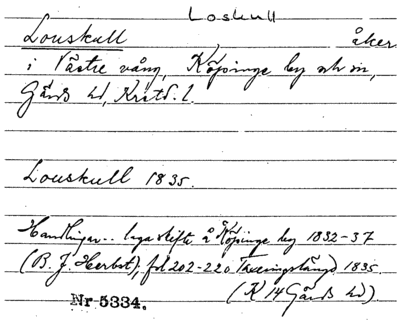 Loskull
Louskull åker
i Västre vång, Köpinge by och sn,
Gärds hd, Kristd. l.
Louskull 1835.
Handlingar.. laga skifte å Köpinge by 1832-37
(B. J. Herbst), fol 202-220 Taxeringslängd 1835.
(K 14 Gärds hd)
Nr 5334.